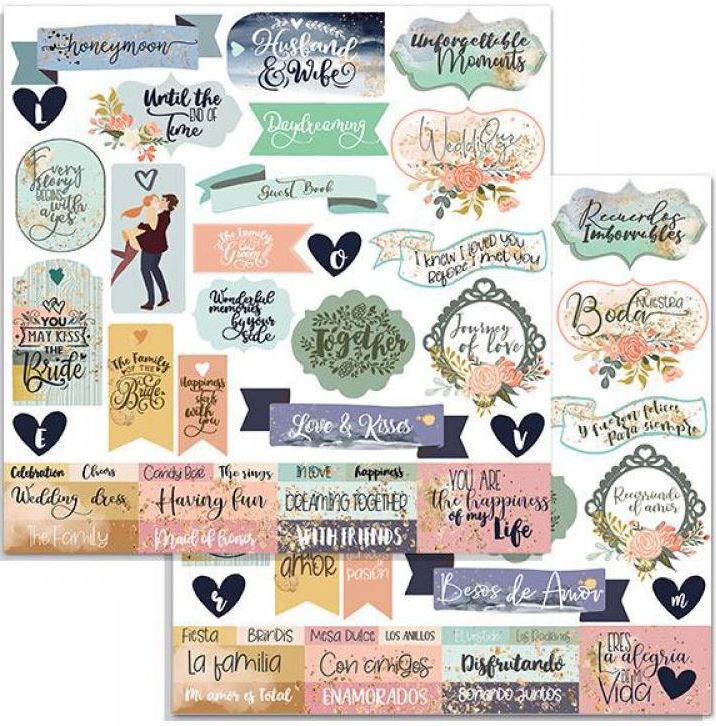 honeymoon
Husband
& Wife
Unforgettable
Moments
L
Until the
END OF
Time
Daydreaming
Our
Wedding
Every
Story
BEGINS
with
a yes
Guest Book
The Family
Groom
O
I knew I loved you
Before I met you
YOU
MAY KISS
THE
Bride
Wonderful
memories
by your
side
Together
Journey
of love
The Family
OF THE
Bride
Happiness
with
you
E
Love & Kisses
V
Celebration
Cheers
Candy Bar
The rings
IN LOVE
happiness
Wedding dress
Having fun
DREAMING TOGETHER
The Family
Maid of honor
WITH FRIENDS
YOU ARE
the happiness
of my
Life
Recuerdos
Imborrables
Nuestra
Boda
y fueron felices
Para siempre
Recorriendo
el amor
amor
pasión
r
Besos de Amor
m
Fiesta
BRINDIS
MESA DULCE
LOS ANILLOS
El vestido
La familia
Con amigos
Disfrutando
Mi amor es Total
ENAMORADOS
Soñando Juntos
ERES
la alegría
DE MI
Vida